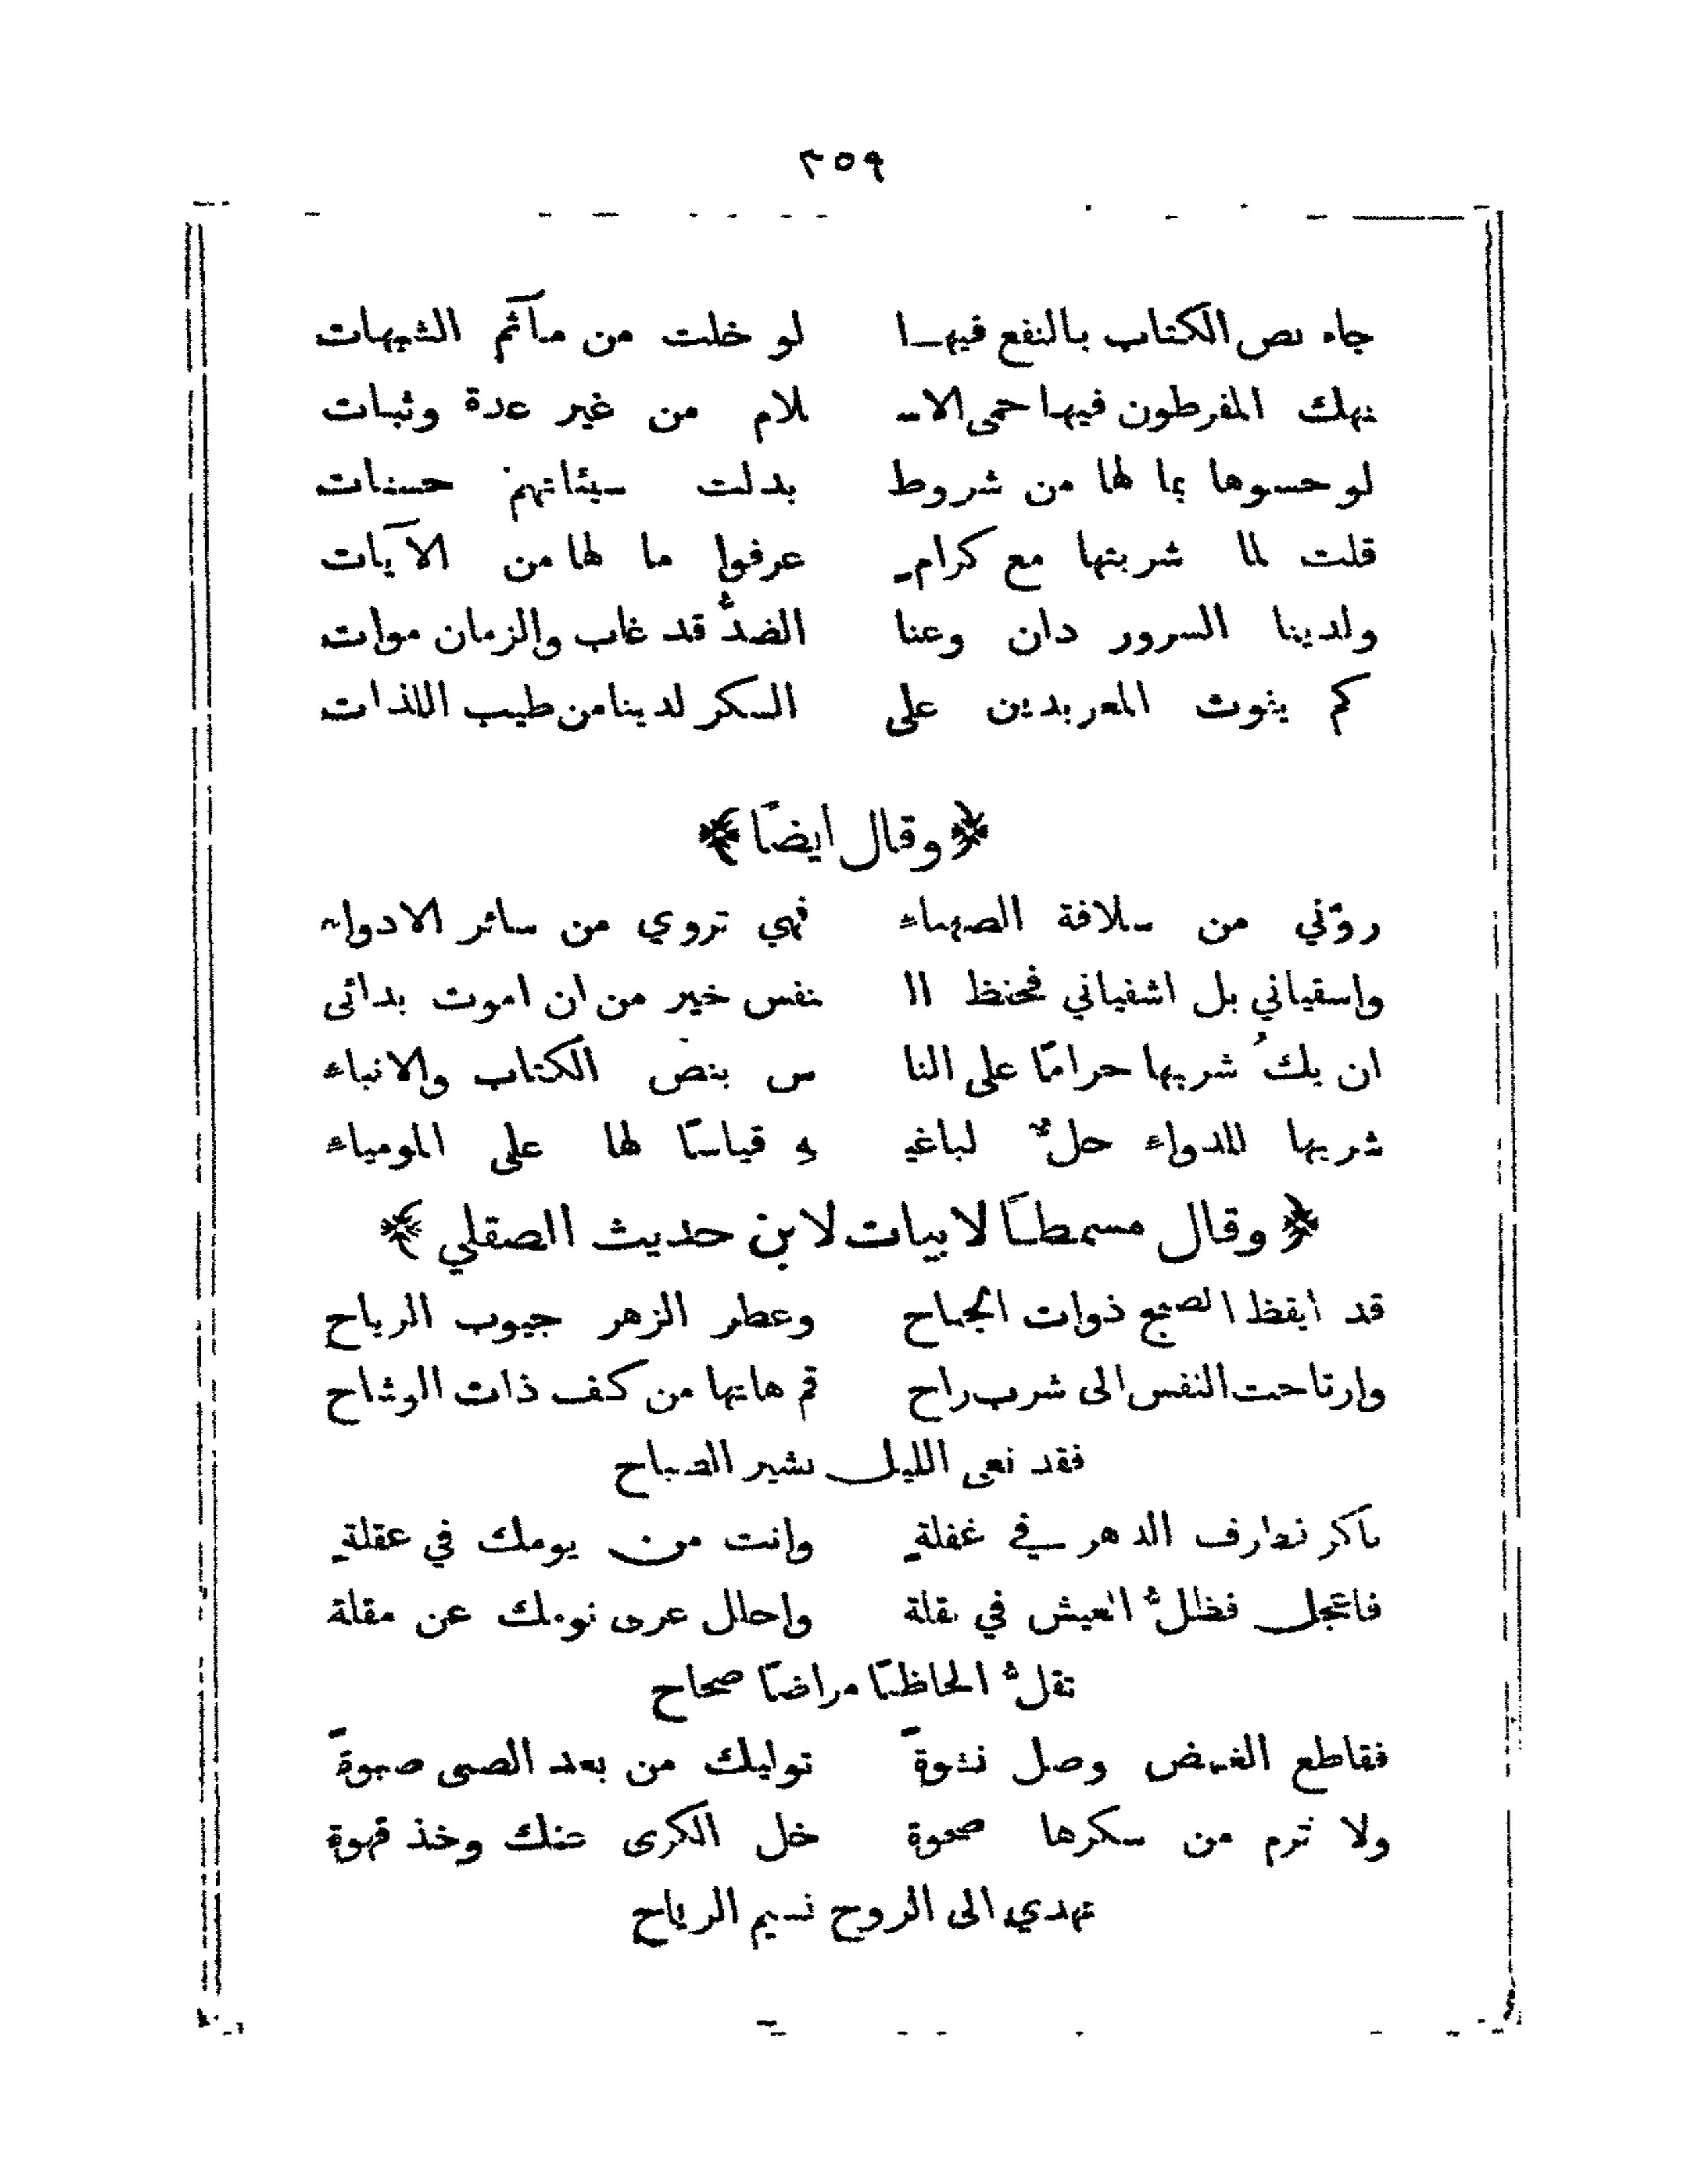 ٣٥٩
جاء نص الكتاب بالنفع فيهـا لو خلت من مآثم الشبهات
نهك المفرطون فيها حمى الاسـ ـلام من غير عدة وثبات
لو حسوها بما لها من شروط بدلت سيئاتهم حسنات
قلت لما شربتها مع كرامٍ عرفوا ما لها من الآيات
ولدينا السرور دان وعنا الضدُّ قد غاب والزمان موات
كم يفوت المعربدين على السكر لدينا من طيب اللذات
﴿ وقال ايضاً ﴾
روّني من سلافة الصهباء فهي تروي من سائر الادواء
واسقياني بل اشفياني فحفظ الـ ـنفس خير من ان اموت بدائى
ان يكُ شربها حراماً على النا س بنص الكتاب والانباء
شربها للدواء حلٌّ لباغيـ ـهِ قياساً لها على المومياء
﴿ وقال مسمطـاً لابيات لابن حديث الصقلي ﴾
قد ايقظ الصبح ذوات الجناح وعطر الزهر جيوب الرياح
وارتاحت النفس الى شرب راح قم هاتها من كف ذات الوشاح
فقد نعى الليل بشير الصباح
باكر فطرف الدهر في غفلةٍ وانت من يومك في عقلةٍ
فاعجل فظلُّ العيش في نقلة واحلل عرى نومك عن مقلة
تقلُّ الحاظـاً مراضاً صحاح
فقاطع الغمض وصل نشوةً توليك من بعد الصبى صبوةً
ولا ترم من سكرها صحوة خل الكرى عنك وخذ قهوة
تهدي الى الروح نسيم الرياح